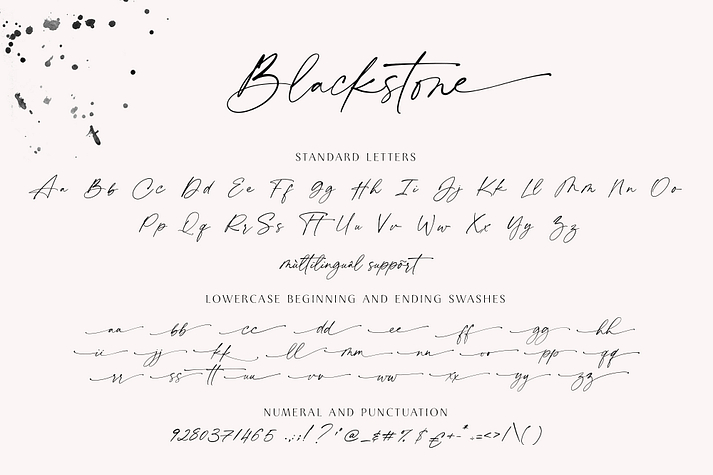 Blackstone
STANDARD LETTERS
Aa Bb Cc Dd Ee Ff gg Hh Ii Jj Kk Ll Mm Nn Oo
Pp Qq Rr Ss Tt Uu Vv Ww Xx Yy Zz
mùltilingual suppõrt
LOWERCASE BEGINNING AND ENDING SWASHES
aa bb cc dd ee ff gg hh
ii jj kk ll mm nn oo pp qq
rr ss tt uu vv ww xx yy zz
NUMERAL AND PUNCTUATION
9280371465 .,:;! ? @ _ & # % $ € + - = < > / \ ( )